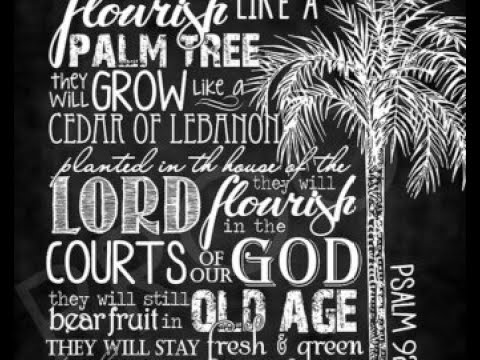 flourish LIKE A
PALM TREE
they will GROW like a
CEDAR OF LEBANON
planted in th house of the
LORD they will
flourish
in the
COURTS OF OUR GOD
they will still
bear fruit in OLD AGE
THEY WILL STAY fresh & green
PSALM 92